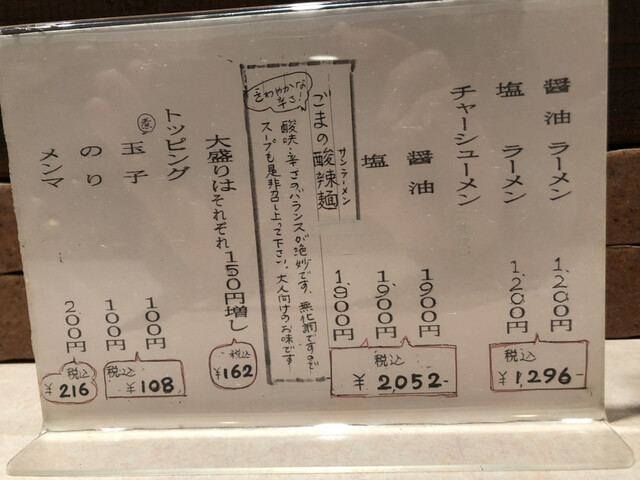 醤油ラーメン 1,200円
塩ラーメン 1,200円
税込
¥1,296-
チャーシューメン
醤油 1900円
塩 1,900円
ごまの酸辣麺 1,900円
サンラーメン
税込
¥2,052-
さわやかな辛さ!
酸味・辛さのバランスが絶妙です。無化調ですので
スープも是非召し上って下さい。大人向けのお味です
大盛りはそれぞれ150円増し
税込
¥162
トッピング
煮玉子 100円
のり 100円
税込
¥108
メンマ 200円
税込
¥216